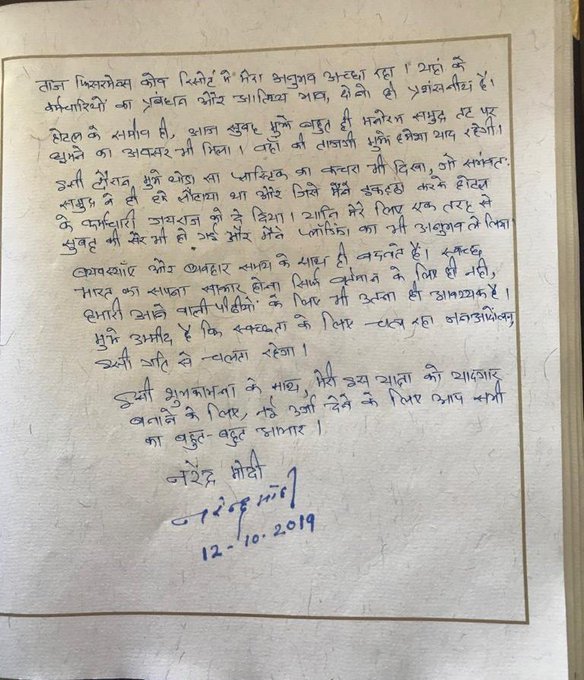 ताज फिशरमेन्स कोव रिसोर्ट में मेरा अनुभव अच्छा रहा। यहां के
कर्मचारियों का प्रबंधन और आतिथ्य भाव, दोनों ही प्रशंसनीय हैं।
होटल के समीप ही, आज सुबह मुझे बहुत ही मनोरम समुद्र तट पर
घूमने का अवसर भी मिला। वहां की ताजगी मुझे हमेशा याद रहेगी।
इसी दौरान, मुझे थोड़ा सा प्लास्टिक का कचरा भी दिखा, जो संभवतः
समुद्र ने ही हमें लौटाया था और जिसे मैंने इकट्ठा करके होटल
के कर्मचारी जयराज को दे दिया। यानि मेरे लिए एक तरह से
सुबह की सैर भी हो गई और मैंने प्लॉगिंग का भी अनुभव ले लिया।
व्यवस्थाएँ और व्यवहार समय के साथ ही बदलते हैं। स्वच्छ
भारत का सपना साकार होना सिर्फ वर्तमान के लिए ही नहीं,
हमारी आने वाली पीढ़ियों के लिए भी उतना ही आवश्यक है।
मुझे उम्मीद है कि स्वच्छता के लिए चल रहा जनआंदोलन,
इसी गति से चलता रहेगा।
इसी शुभकामना के साथ, मेरी इस यात्रा को यादगार
बनाने के लिए, नई उर्जा देने के लिए आप सभी
का बहुत-बहुत आभार।
नरेंद्र मोदी
नरेन्द्र मोदी
12-10-2019